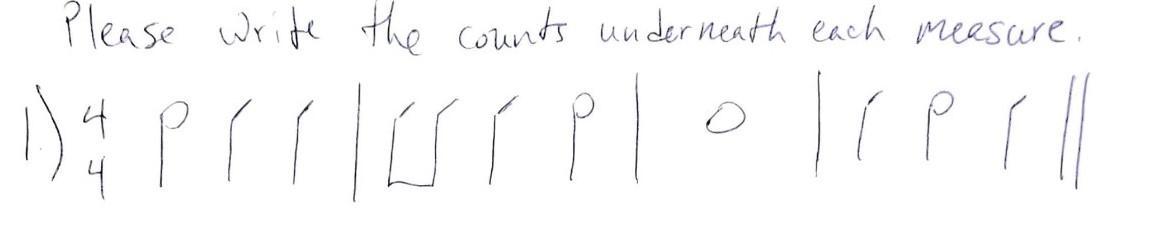 Please write the counts underneath each measure.
1.) 4
4